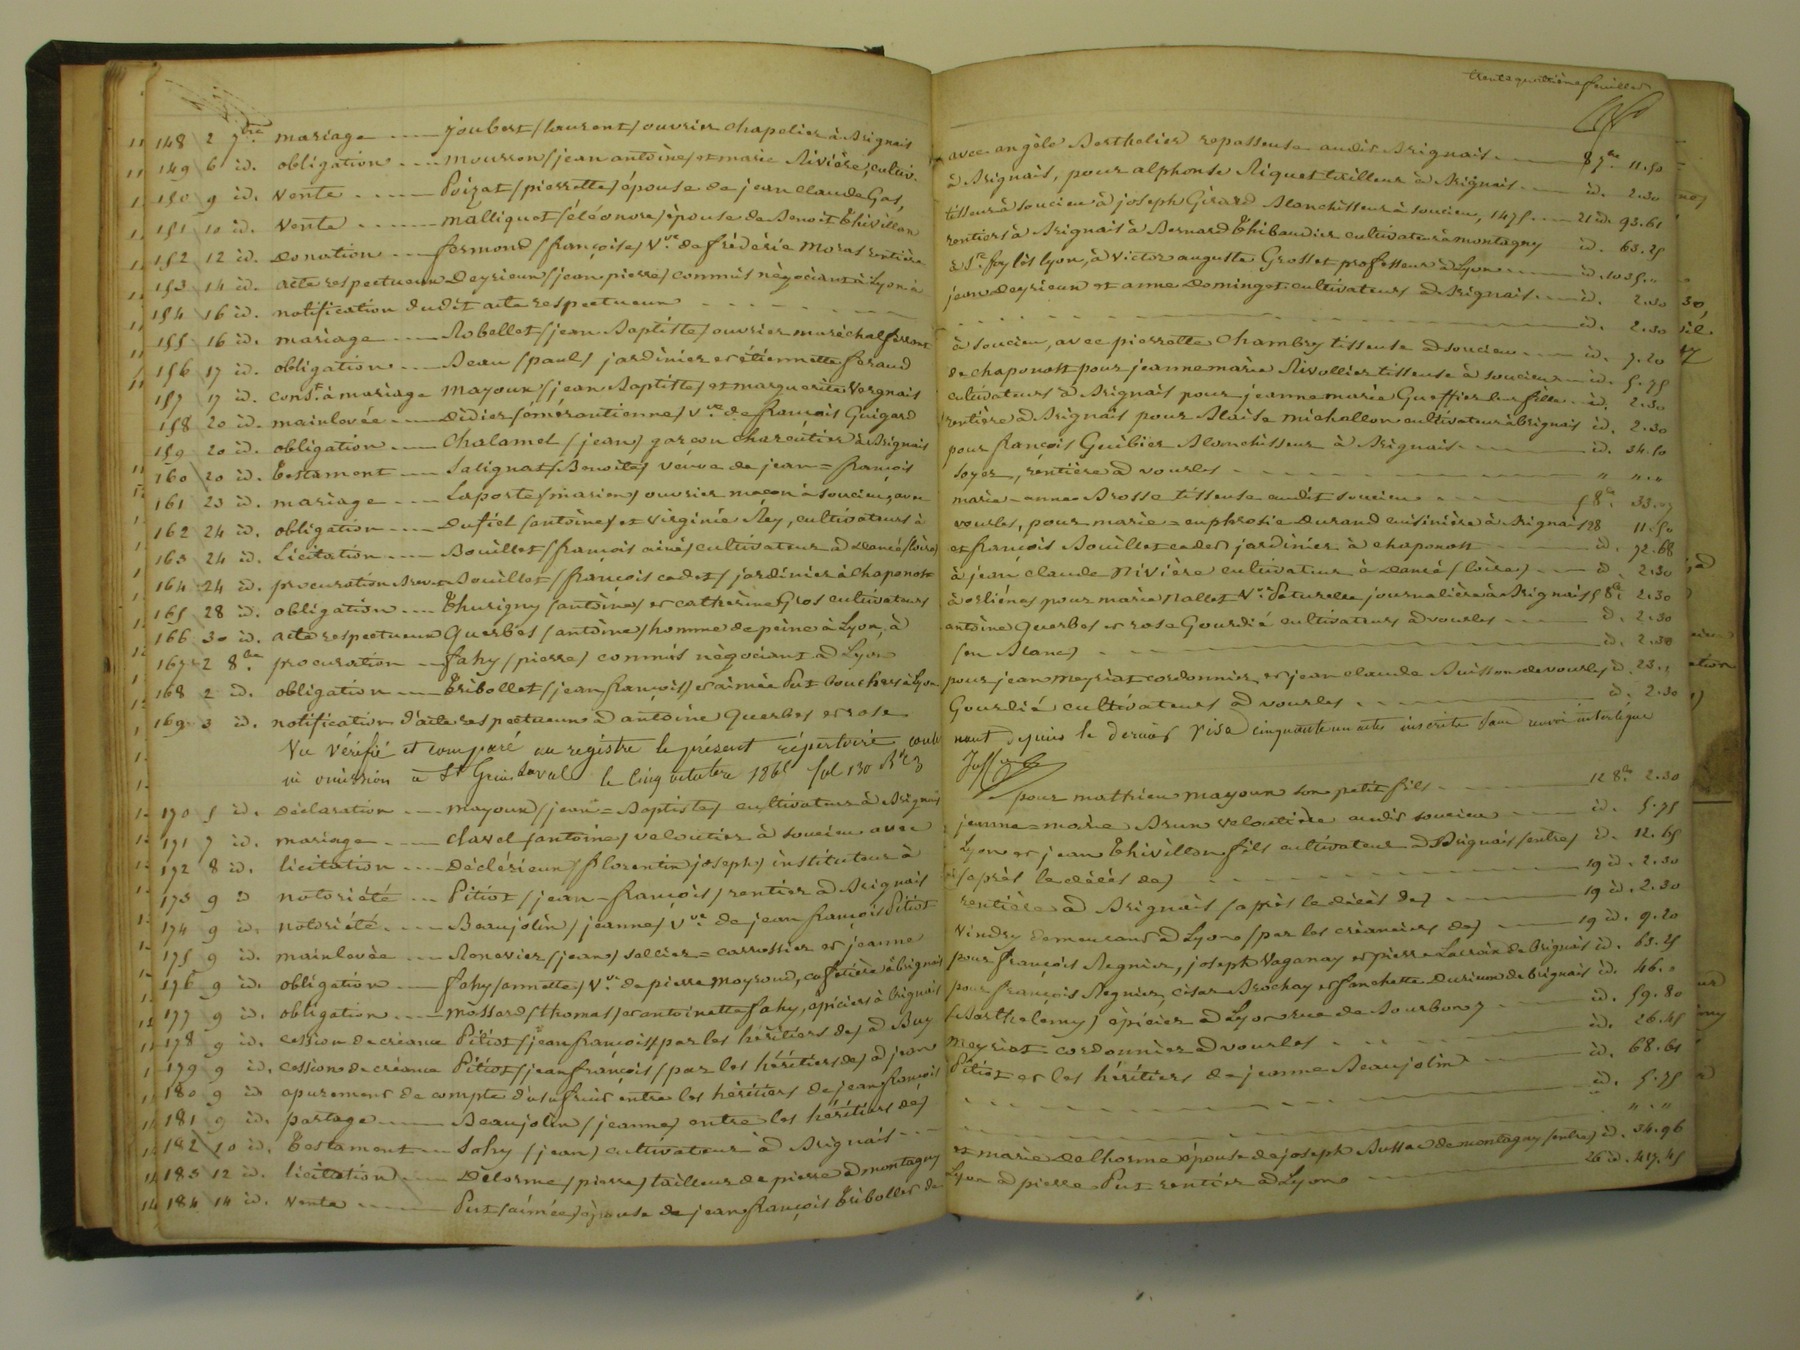 148 2 7bre mariage joubert (laurent) ouvrier chapelier à Brignais
149 6 id. obligation mourron (jean antoine) et marie Rivière, cultiv.
150 9 id. vente Poizat (pierrette) épouse de jean Claude Gas,
151 10 id. vente malliquet (éléonore) épouse de Benoit Thivillon
152 12 id. donation fermond (françoise) Vve de frédéric moras rentière
153 14 id. acte respectueux Deyrieux (jean pierre) commis négociant à Lyon à
154 16 id. notification dudit acte respectueux
155 16 id. mariage Robellet (jean Baptiste) ouvrier maréchal ferrant
156 17 id. obligation Beau (paul) jardinier et étiennette feraud
157 17 id. const. à mariage mayoux (jean Baptiste) et marguerite Vergnais
158 20 id. mainlevée Didier (émérantienne) Vve de françois Guigard
159 20 id. obligation Chalamel (jean) garçon charcutier à Brignais
160 20 id. Testament Salignat (Benoite) veuve de jean=françois
161 23 id. mariage Laporte (marien) ouvrier maçon à soucieu, avec
162 24 id. obligation Dufiel (antoine) et virginie Rey, cultivateurs à
163 24 id. Licitation Bouillet (françois ainé) cultivateur à Dancé (loire)
164 24 id. procuration Brevet Bouillet (françois cadet) jardinier à Chaponost
165 28 id. obligation Thurigny (antoine) et catherine Gros cultivateurs
166 30 id. acte respectueux Querbes (antoine) homme de peine à Lyon, à
167 2 8bre procuration fahy (pierre) commis négociant à Lyon
168 2 id. obligation Tribollet (jean françois) et aimée Put bouchers à Lyon
169 3 id. notification d'acte respectueux à antoine Querbes et rose
Vu vérifié et comparé au registre le présent répertoire conte
ni omission à St Genis Laval le cinq octobre 1865 fol 130
170 5 id. Déclaration mayoux (jean=Baptiste) cultivateur à Brignais
171 7 id. mariage Clavel (antoine) veloutier à soucieu avec
172 8 id. licitation Declérieux (florentin joseph) instituteur à
173 9 id notoriété Pitiot (jean-françois) rentier à Brignais
174 9 id. notoriété Beaujolin (jeanne) Vve de jean françois Pitiot
175 9 id. mainlevée Ronevier (jean) sellier=carrossier et jeanne
176 9 id. obligation fahy (annette) Vve de pierre mayroud, cafetière à brignais
177 9 id. obligation mossard (thomas) et antoinette fahy, épiciers à brignais
178 9 id. cession de créance Pitiot (jean françois) (par les héritiers de) à Buy
179 9 id. cession de créance Pitiot (jean françois) (par les héritiers de) à jean
180 9 id apurement de compte d'usufruit entre les héritiers de jean françois
181 9 id. partage Beaujolin (jeanne) entre les héritiers de)
182 10 id. Testament Sahy (jean) cultivateur à Brignais
183 12 id. licitation Delorme (pierre) tailleur de pierre à montagny
184 14 id. vente Put (aimée) épouse de jean françois Tribollet de
trente quatrième feuillet
avec angèle Berthelier repasseuse audit Brignais 8 7bre 11.50
à Brignais, pour alphonse Riquet tailleur à Brignais id. 2.30
tisseur à soucieu à joseph Girard Blanchisseur à soucieu, 1475 21 id. 93.61
rentiers à Brignais à Bernard Thibaudier cultivateur à montagny id. 63.25
à Ste foy lès lyon, à victor auguste Grosset professeur à Lyon id. 1035.„
jean Deyrieux et anne Domingot cultivateurs à Brignais id. 2.30
id. 2.30
à soucieu, avec pierrette Chambry tisseuse à soucieu id. 7.20
de chaponost pour jeanne marie Rivollier tisseuse à soucieu id. 5.75
cultivateurs à Brignais pour jeanne marie Gueffier leur fille id. 2.30
rentière à Brignais pour Blaise michallon cultivateur à brignais id. 2.30
pour françois Guibier Blanchisseur à Brignais id. 34.50
Soyer, rentière à vourles „ „.„
marie-anne Brosse tisseuse audit soucieu 5 8bre 33.07
vourles, pour marie=euphrosie Durand cuisinière à Brignais 28 11.50
et françois Bouillet cadet jardinier à chaponost id. 72.68
à jean claude Rivière cultivateur à Dancé (loire) id. 2.30
à orliénas pour marie Nallet Vve Paturelle journalière à Brignais 5 8bre 2.30
antoine Querbes et rose Gourdié cultivateurs à vourles id. 2.30
(en Blanc) id. 2.30
pour jean meyriat cordonnier et jean claude Buisson de vourles id. 23.„
Gourdié cultivateurs à vourles id. 2.30
nant depuis le dernier visa cinquante un actes inscrits sans renvoi interligne
pour mathieu mayoux son petit fils 12 8bre 2.30
jeanne=marie Brun veloutière audit soucieu id. 5.75
Lyon et jean Thivillon fils cultivateur à Brignais (entre) id. 12.65
(après le décès de) 19 id. 2.30
rentière à Brignais (après le décès de) 19 id. 2.30
vindry demeurant à Lyon (par les créanciers de) 19 id. 9.20
pour françois Regnier, joseph Vaganay et pierre Lacroix de Brignais id. 63.25
pour françois Regnier, césar Brochay et fanchette Durieux de brignais id. 46.„
(Barthélemy) épicier à Lyon rue de Bourbon 7 id. 59.80
meyriat cordonnier à vourles id. 26.45
Pitiot et les héritiers de jeanne Beaujolin id. 68.61
id. 5.75
„ „.„
et marie delhorme épouse de joseph Bussac de montagny (entre) id. 34.96
Lyon à pierre Put rentier à Lyon 26 id. 417.45